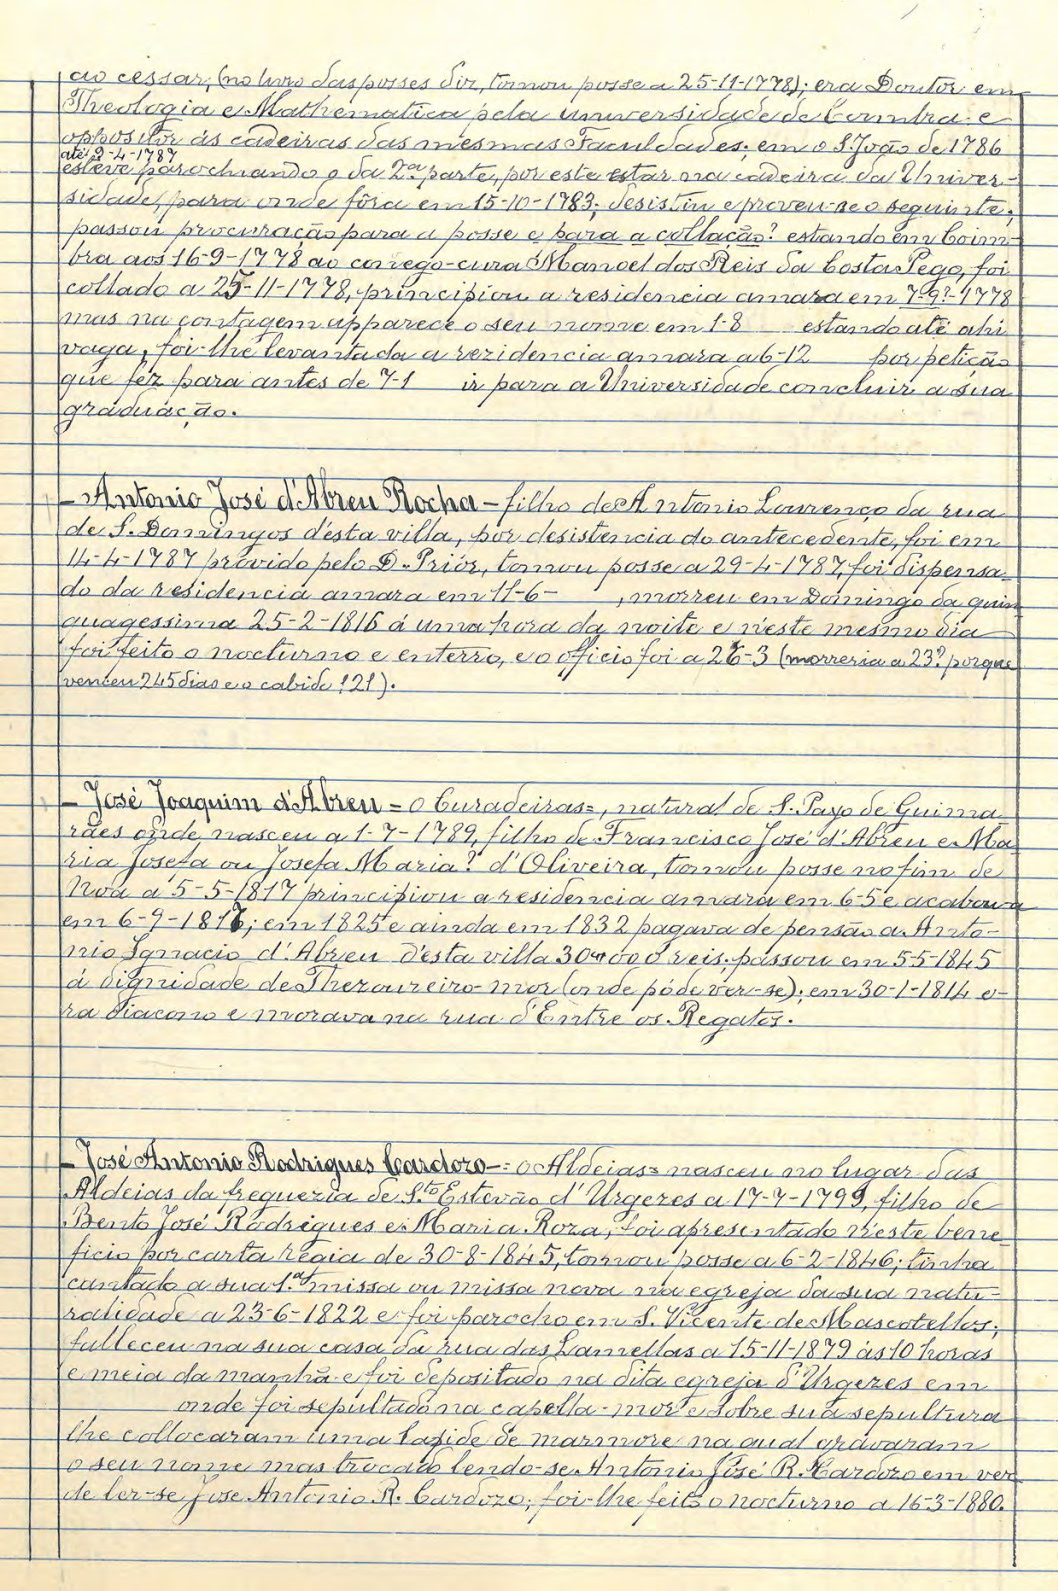 ao cessar, (no livro das posses diz, tomou posse a 25-11-1778); era Doutor em
Theologia e Mathematica pela universidade de Coimbra e
oppositor ás cadeiras das mesmas Faculdades; em o S. João de 1786
até 2-4-1787
esteve parochiando o da 2.ª parte, por este estar na cadeira da Univer-
sidade, para onde fôra em 15-10-1783; desistiu e proveu-se o seguinte;
passou procuração para a posse e para a collação? estando em Coim-
bra aos 16-9-1778 ao conego-cura Manoel dos Reis da Costa Pego, foi
collado a 25-11-1778, principiou a residencia amara em 7-9?-1778
mas na contagem apparece o seu nome em 1-8 estando até ahi
vaga, foi-lhe levantada a rezidencia amara a 6-12 por petição
que fez para antes de 7-1 ir para a Universidade concluir a sua
graduação.
– Antonio José d'Abreu Rocha – filho de Antonio Lourenço da rua
de S. Domingos d'esta villa, por desistencia do antecedente, foi em
14-4-1787 provido pelo D. Prior, tomou posse a 29-4-1787, foi dispensa-
do da residencia amara em 11-6- , morreu em Domingo da quin-
quagessima 25-2-1816 á uma hora da noite e n'este mesmo dia
foi feito o nocturno e enterro, e o officio foi a 26-3 (morreria a 23? porque
venceu 245 dias e o cabido 121).
– José Joaquim d'Abreu = o Curadeiras =, natural de S. Payo de Guima-
rães onde nasceu a 1-7-1789, filho de Francisco José d'Abreu e Ma-
ria Josefa ou Josefa Maria? d'Oliveira, tomou posse no fim de
Noa a 5-5-1817 principiou a residencia amara em 6-5 e acabou-a
em 6-9-1817; em 1825 e ainda em 1832 pagava de pensão a Anto-
nio Ignacio d'Abreu d'esta villa 30$000 reis; passou em 5-5-1845
á dignidade de Thezoureiro-mor (onde póde ver-se); em 30-1-1814 e-
ra diacono e morava na rua d'Entre os Regatos.
– José Antonio Rodrigues Cardozo – = o Aldeias = nasceu no lugar das
Aldeias da freguezia de S.to Estevão d'Urgezes a 17-7-1799, filho de
Bento José Rodrigues e Maria Roza; foi apresentado n'este bene-
ficio por carta regia de 30-8-1845, tomou posse a 6-2-1846; tinha
cantado a sua 1.ª missa ou missa nova na egreja da sua natu-
ralidade a 23-6-1822 e foi parocho em S. Vicente de Mascotellos;
falleceu na sua casa da rua das Lamellas a 15-11-1879 ás 10 horas
e meia da manhã e foi depositado na dita egreja d'Urgezes em
onde foi sepultado na capella-mor e sobre sua sepultura
lhe collocaram uma lapide de marmore na qual gravaram
o seu nome mas trocado lendo-se Antonio José R. Cardozo em vez
de ler-se Jose Antonio R. Cardozo; foi-lhe feito o nocturno a 16-3-1880.